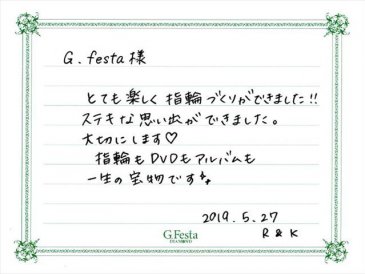 G.festa様
とても楽しく指輪づくりができました!!
ステキな思い出ができました。
大切にします♡
指輪もDVDもアルバムも
一生の宝物です
2019.5.27
R & K
G.Festa
DIAMOND